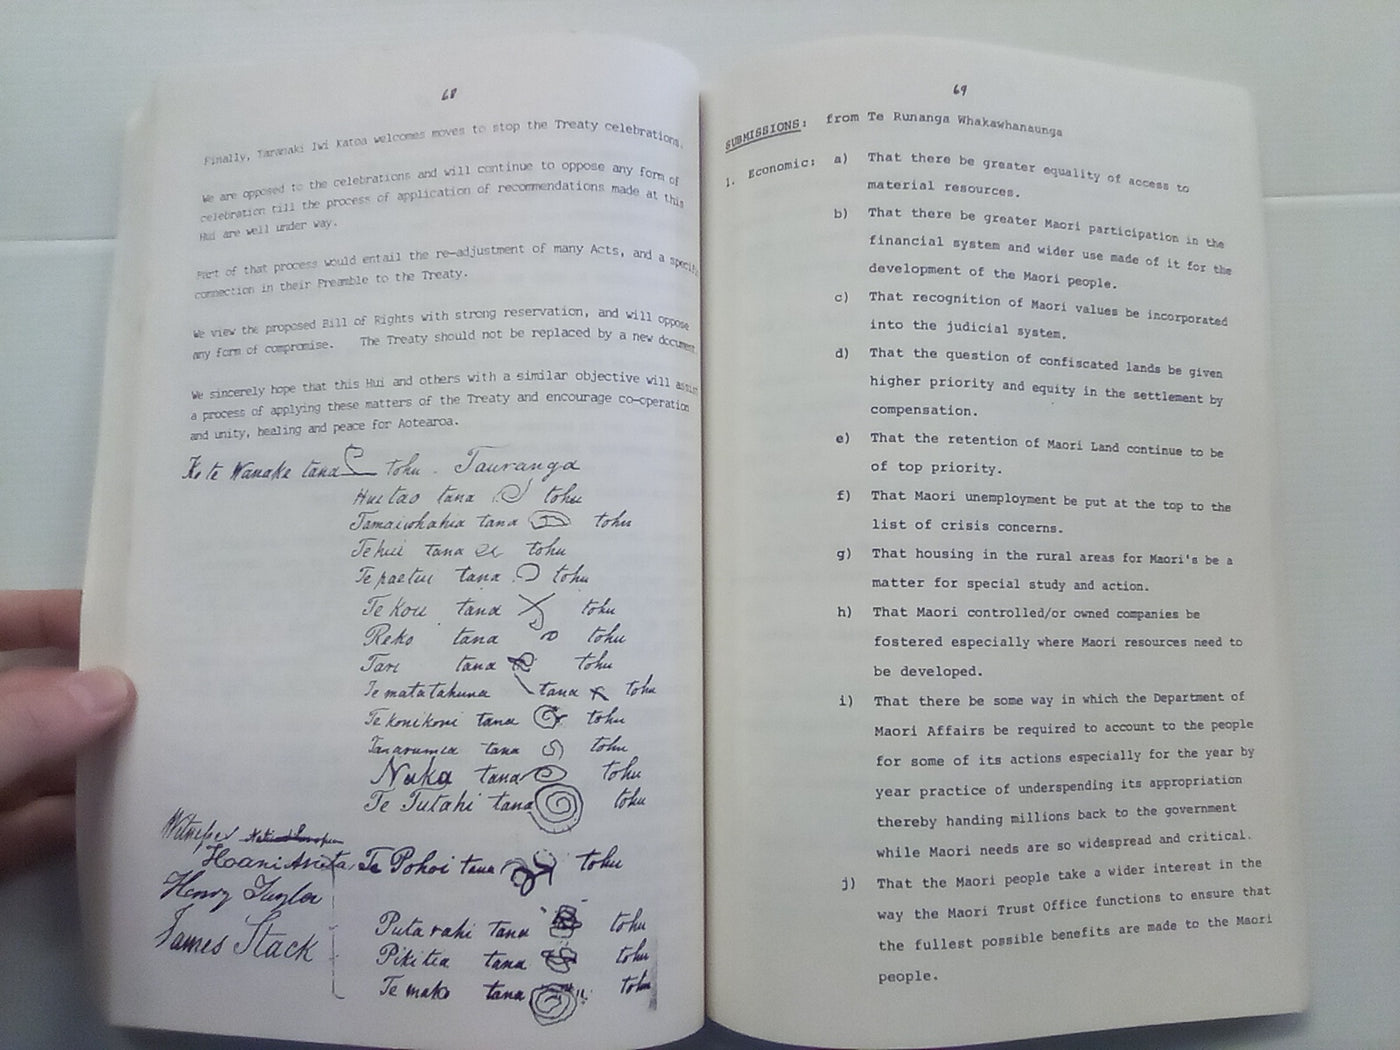 68
Finally, Taranaki Iwi Katoa welcomes moves to stop the Treaty celebrations.
We are opposed to the celebrations and will continue to oppose any form of
celebration till the process of application of recommendations made at this
Hui are well under way.
Part of that process would entail the re-adjustment of many Acts, and a specifi
connection in their Preamble to the Treaty.
We view the proposed Bill of Rights with strong reservation, and will oppose
any form of compromise. The Treaty should not be replaced by a new document.
We sincerely hope that this Hui and others with a similar objective will assist
a process of applying these matters of the Treaty and encourage co-operation
and unity, healing and peace for Aotearoa.
Ko te Wanake tana tohu. Tauranga
Huitao tana tohu
Tamaiwhahia tana tohu
Te hui tana tohu
Te paetui tana tohu
Te Kou tana tohu
Reko tana tohu
Tari tana tohu
Te matatahuna tana tohu
Te konikoni tana tohu
Tanarumia tana tohu
Nuka tana tohu
Te Tutahi tana tohu
Witnesses
Hoani Te Pohoi tana tohu
Henry Taylor
Putarahi tana tohu
James Stack
Pikitia tana tohu
Te mako tana tohu
69
SUBMISSIONS: from Te Runanga Whakawhanaunga
1. Economic: a) That there be greater equality of access to
material resources.
b) That there be greater Maori participation in the
financial system and wider use made of it for the
development of the Maori people.
c) That recognition of Maori values be incorporated
into the judicial system.
d) That the question of confiscated lands be given
higher priority and equity in the settlement by
compensation.
e) That the retention of Maori Land continue to be
of top priority.
f) That Maori unemployment be put at the top to the
list of crisis concerns.
g) That housing in the rural areas for Maori's be a
matter for special study and action.
h) That Maori controlled/or owned companies be
fostered especially where Maori resources need to
be developed.
i) That there be some way in which the Department of
Maori Affairs be required to account to the people
for some of its actions especially for the year by
year practice of underspending its appropriation
thereby handing millions back to the government
while Maori needs are so widespread and critical.
j) That the Maori people take a wider interest in the
way the Maori Trust Office functions to ensure that
the fullest possible benefits are made to the Maori
people.